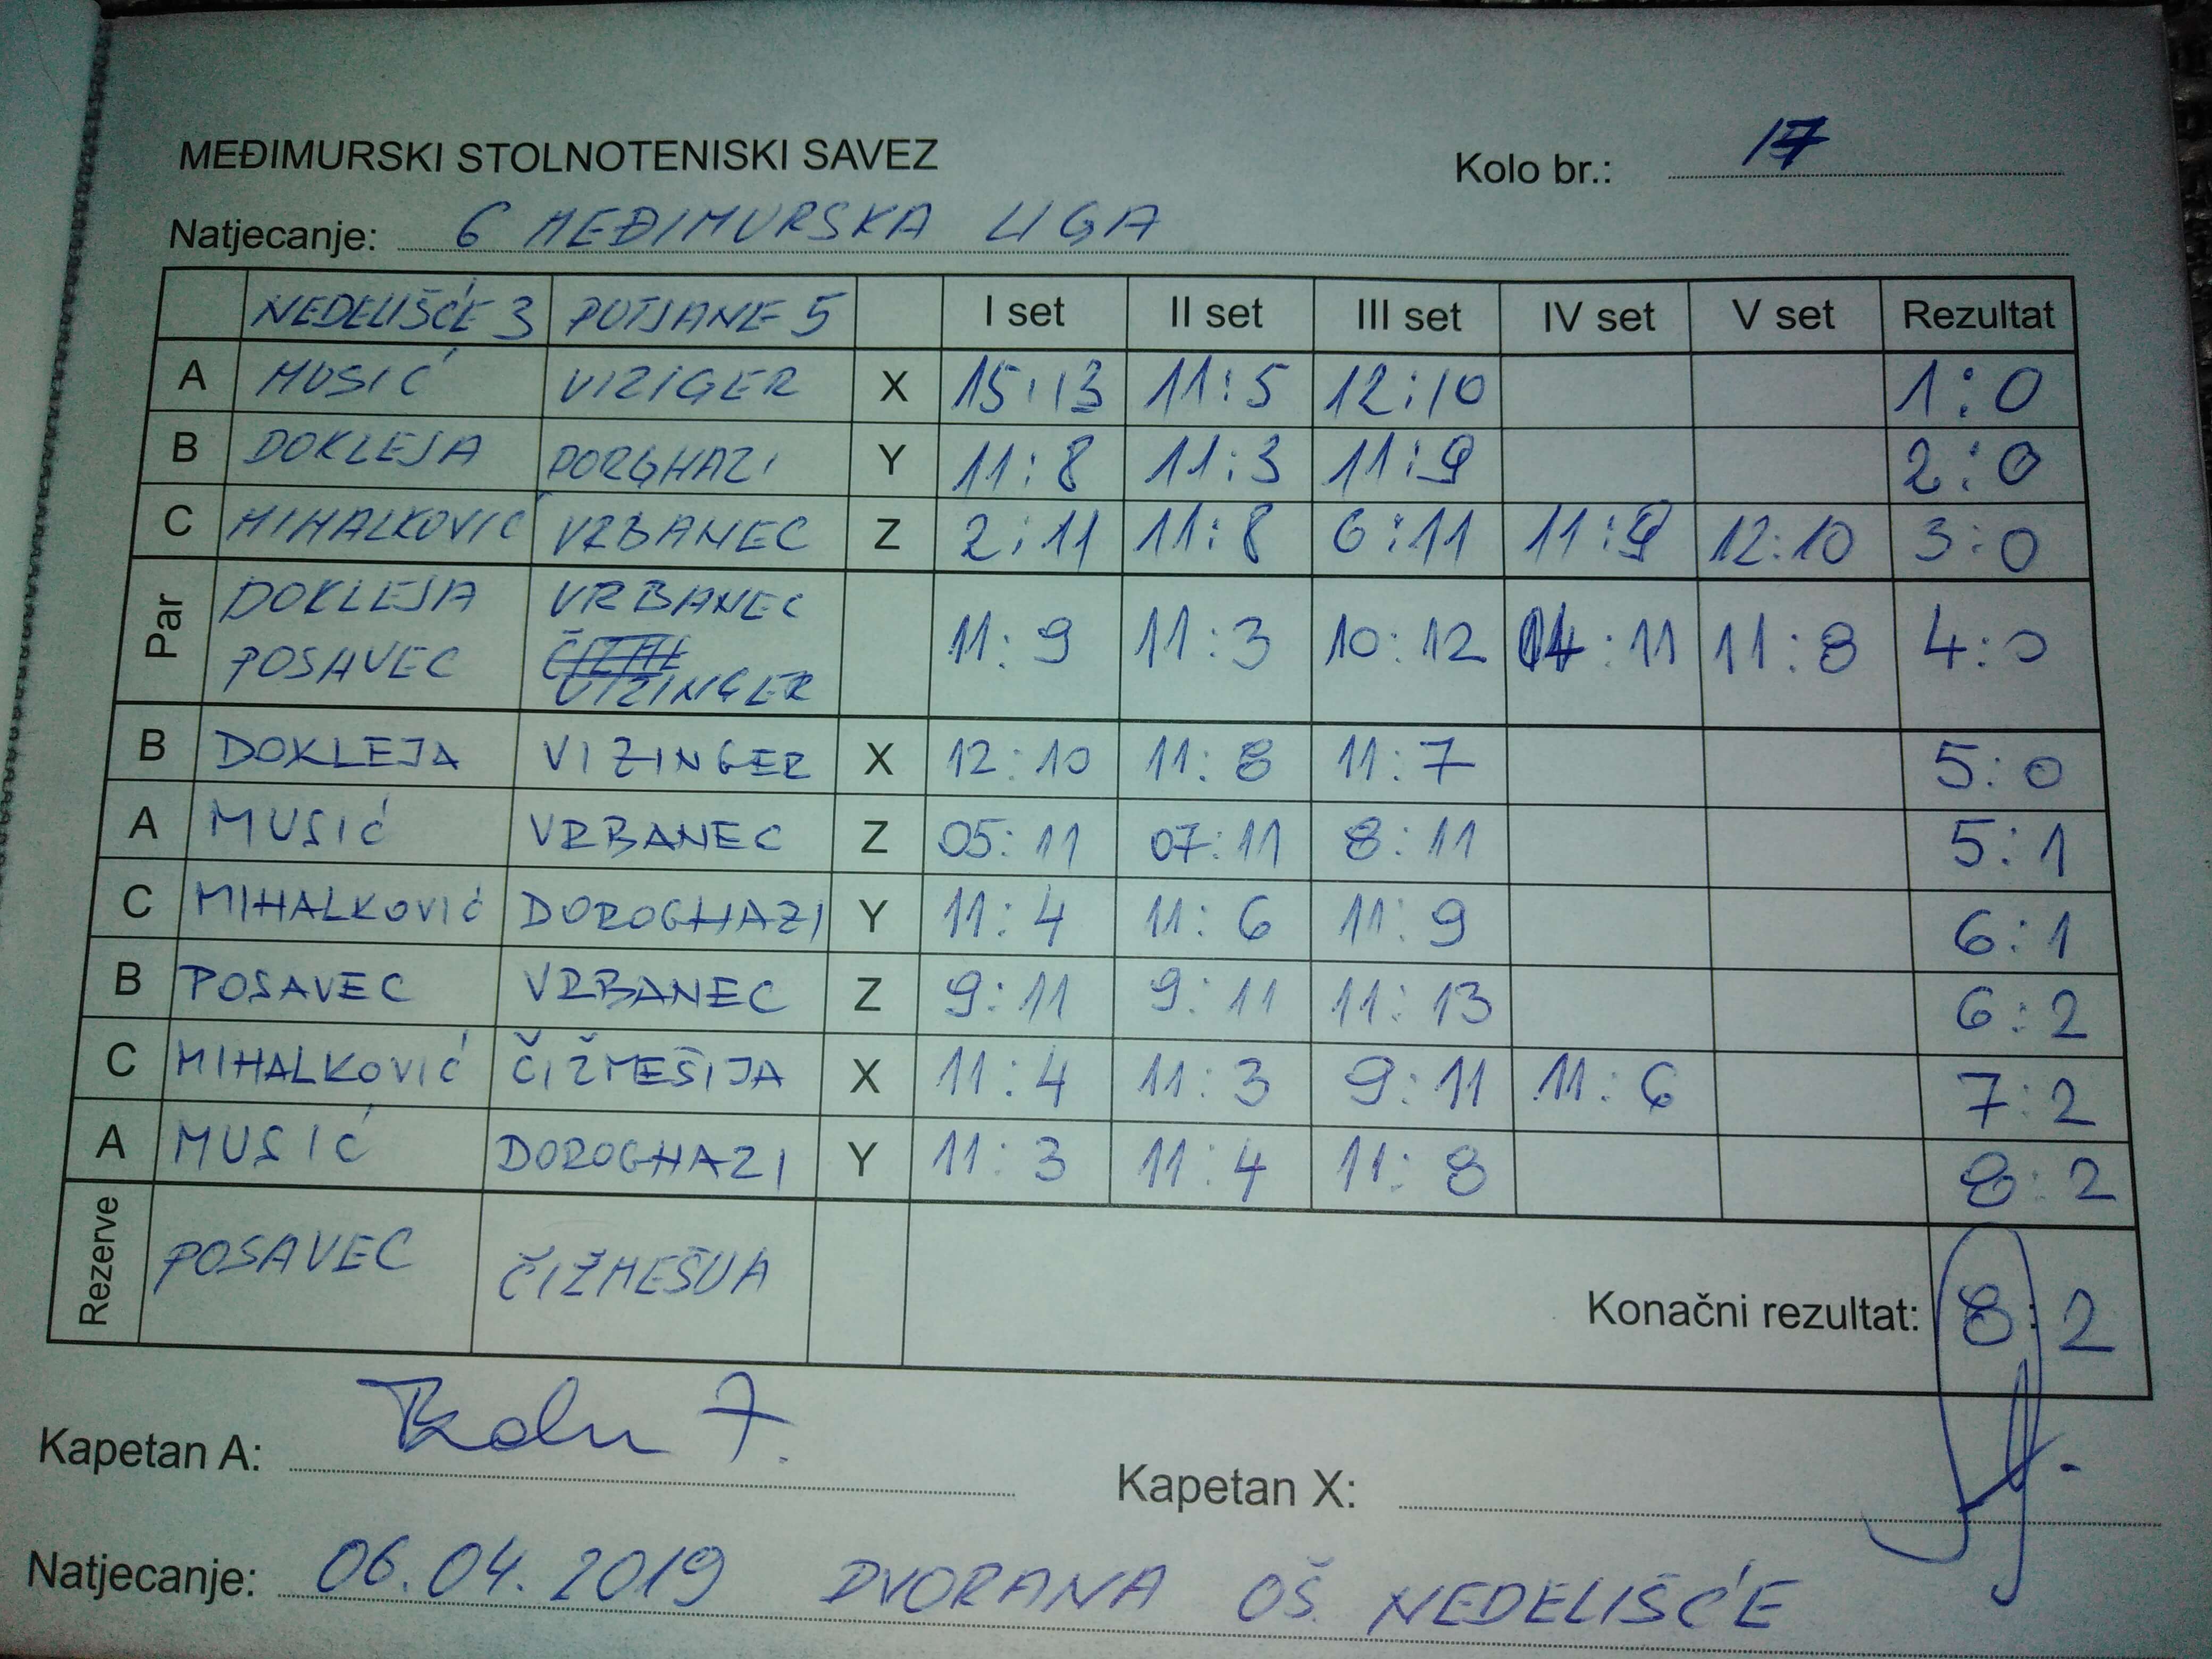 MEĐIMURSKI STOLNOTENISKI SAVEZ Kolo br.: 17
Natjecanje: 6 MEĐIMURSKA LIGA
NEDELIŠĆE 3 PUTJANE 5 I set II set III set IV set V set Rezultat
A MUSIĆ VIZIGER X 15:13 11:5 12:10 1:0
B DOKLEJA DORGHAZI Y 11:8 11:3 11:9 2:0
C MIHALKOVIĆ VRBANEC Z 2:11 11:8 6:11 11:9 12:10 3:0
Par DOKLEJA VRBANEC 11:9 11:3 10:12 :11 11:8 4:0
POSAVEC VIZINGER
B DOKLEJA VIZINGER X 12:10 11:8 11:7 5:0
A MUSIĆ VRBANEC Z 05:11 07:11 8:11 5:1
C MIHALKOVIĆ DOROGHAZI Y 11:4 11:6 11:9 6:1
B POSAVEC VRBANEC Z 9:11 9:11 11:13 6:2
C MIHALKOVIĆ ČIŽMEŠIJA X 11:4 11:3 9:11 11:6 7:2
A MUSIĆ DOROGHAZI Y 11:3 11:4 11:8 8:2
Rezerve POSAVEC ČIŽMEŠIJA Konačni rezultat: 8:2
Kapetan A: Kapetan X:
Natjecanje: 06.04.2019 DVORANA OŠ. NEDELIŠĆE